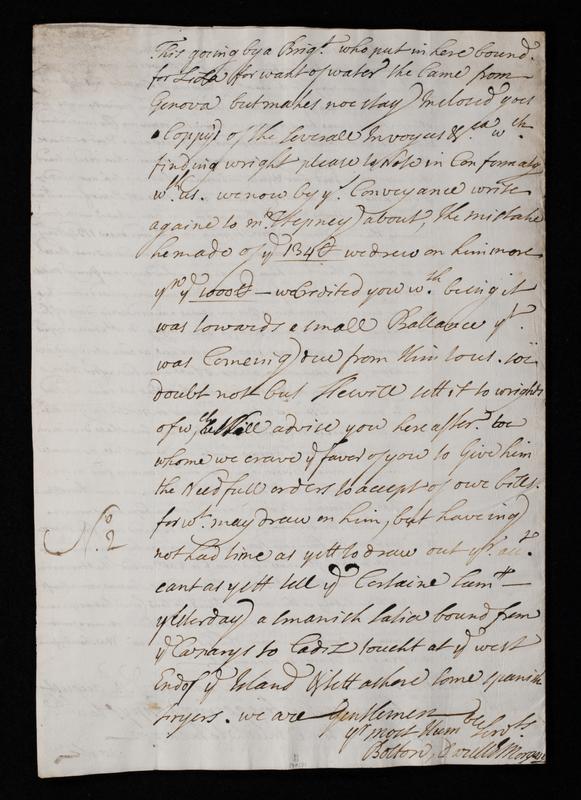 This going by a Brigt. who put in here bound.
for (for want of water she Came from
Genova but makes noe stay) Inclosed goes
Coppys of the severall Invoyces &ca wch
finding wright please to Note in Conformaty
wth us. we now by ys. Conveyance write
againe to mr Stepney about, the mistake
he made of ye 134$ we drew on him more
yn ye 1000$ — we Credited you wth. being it
was towards a small Ballance yt.
was Comeing due from Him to us. we
doubt not but He will sett it to wrights
of wch advise you hereafter. to
whome we crave ye faver of you to Give him
the Needfull orders to accept of owr bills.
for wt. may draw on him, but haveing
No. 2
not had time as yett to draw out yr. acct.
cant as yett tell ye Certaine sum —
yesterday a Spanish bound from
ye Canarys to Cadiz toucht at ye west
End of ye Island & sett ashore some spanish
fryers. we are Gentlemen
yr most Humble Servts.
Bolton,